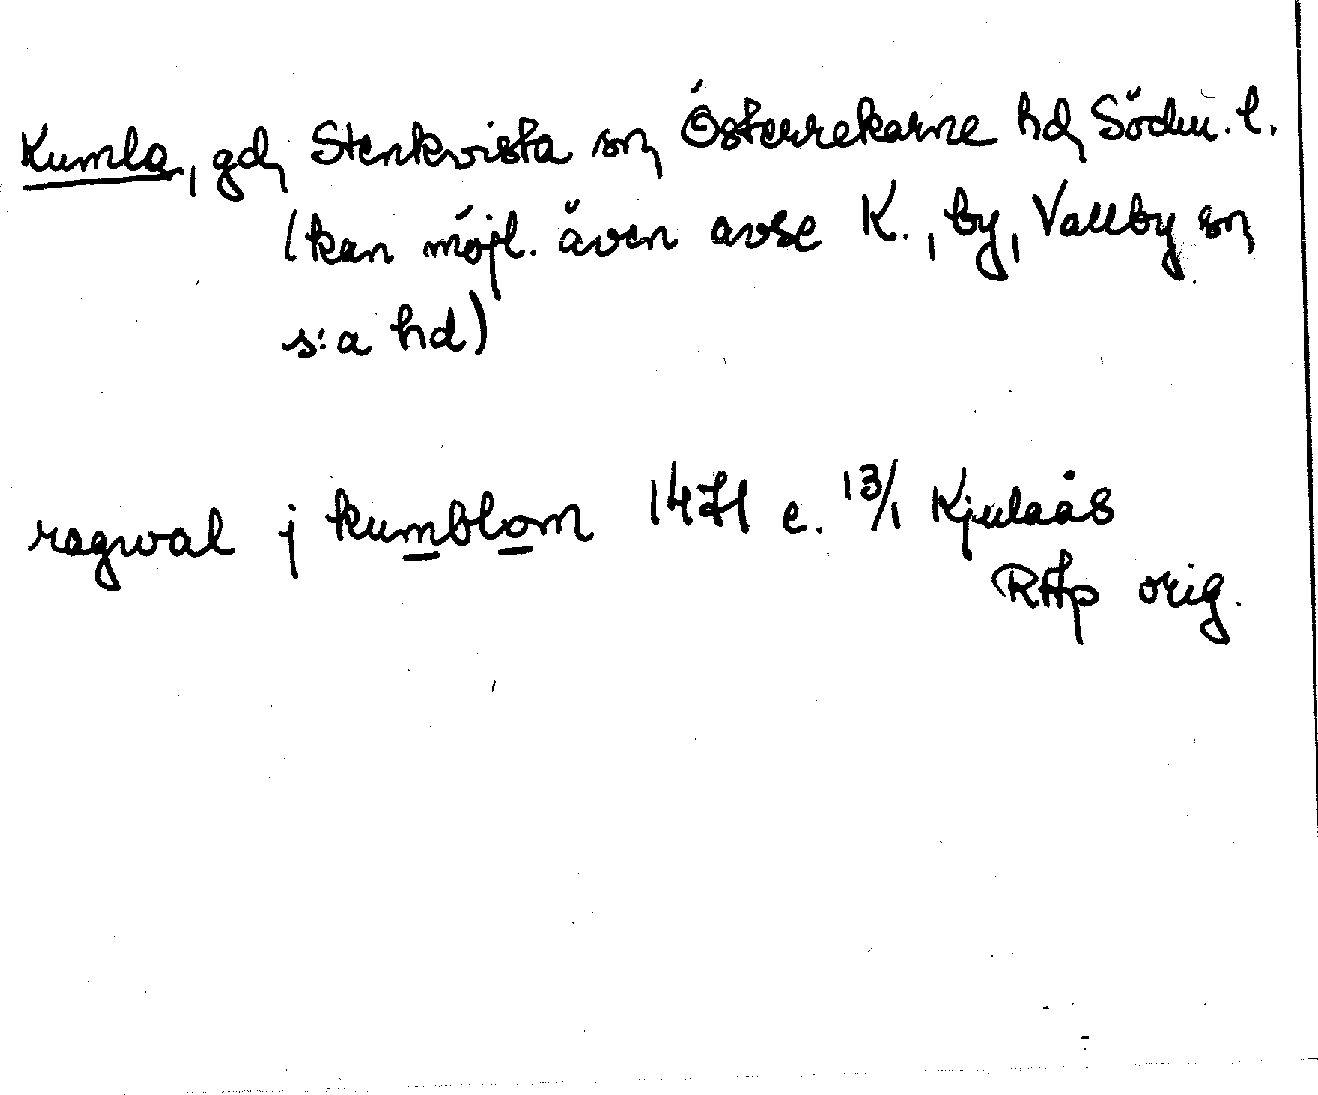 Kumla, gd, Stenkvista sn, Österrekarne hd, Söderm. l.
(kan möjl. även avse K., by, Vallby sn,
s:a hd)
ragwal j kumblom 1471 e. 13/1 Kjulaås
RAp orig.